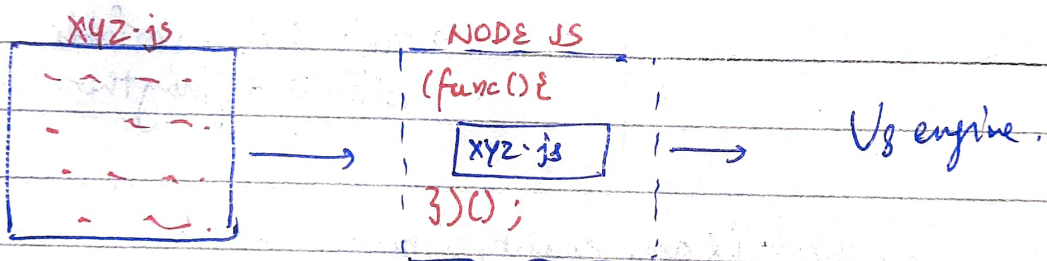 xyz.js
NODE JS
(func(){
xyz.js
})();
V8 engine.